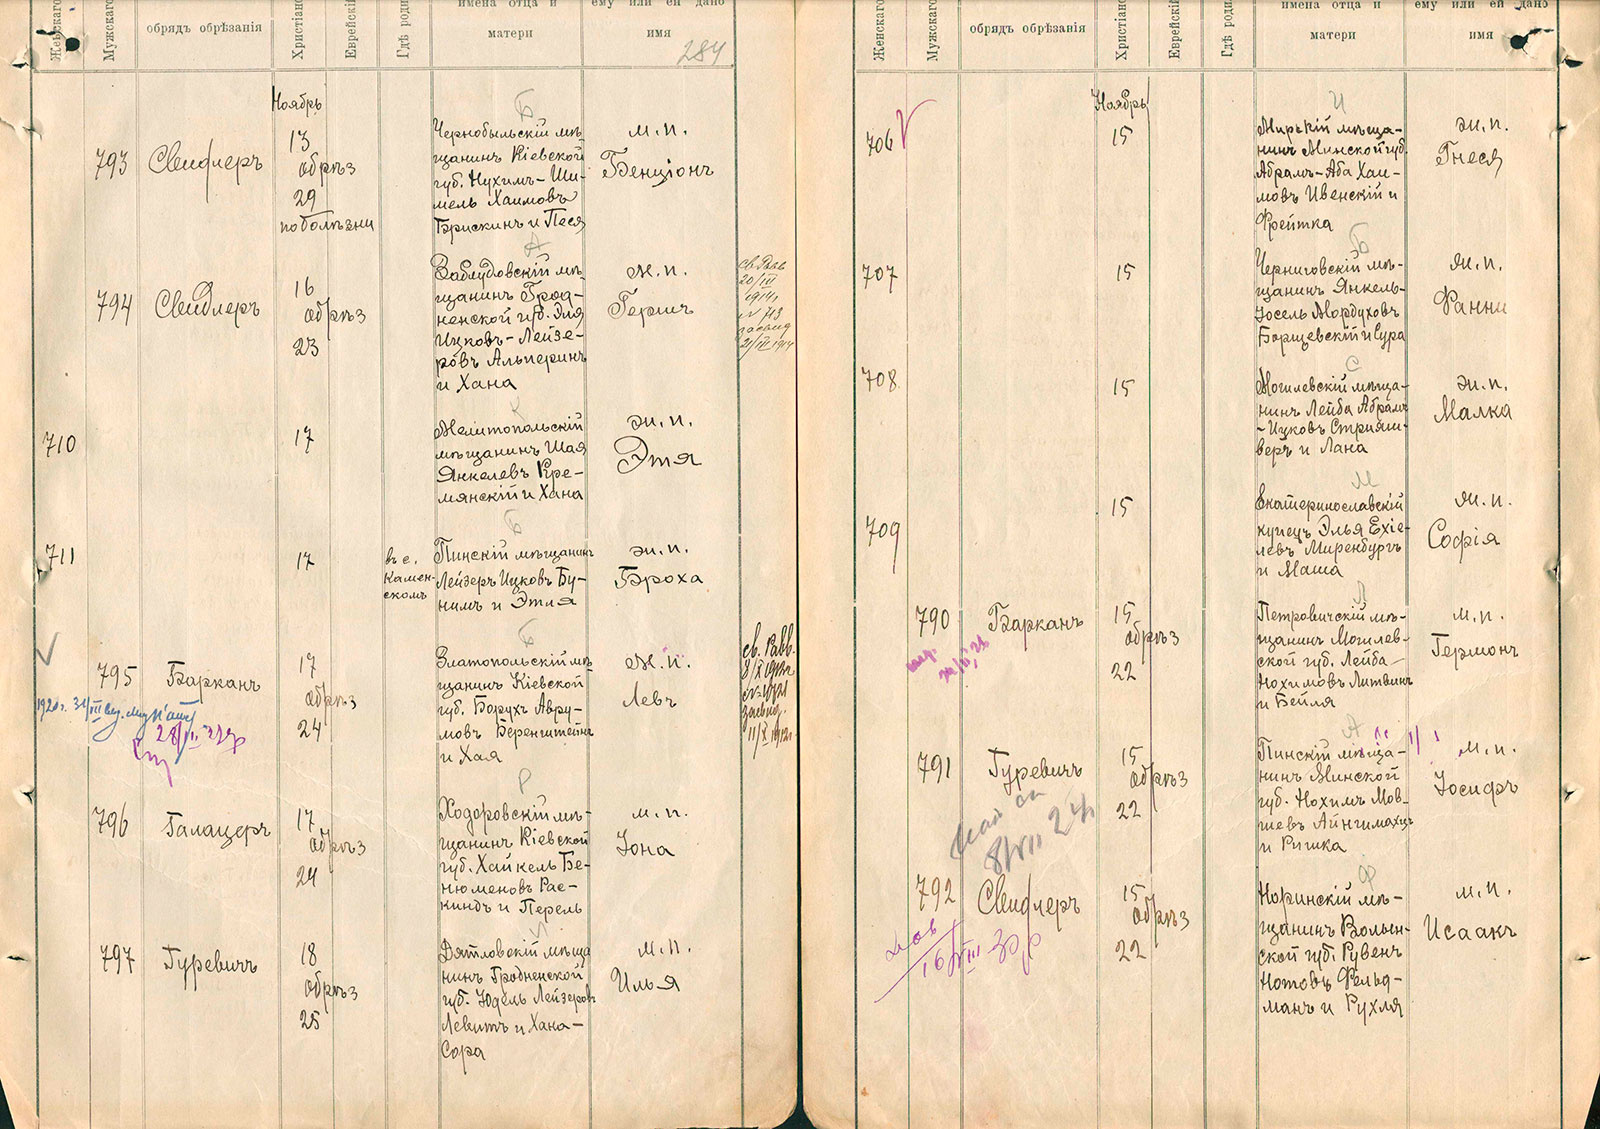 Женскаго
Мужскаго
обрядъ обрѣзанія
Христіанс
Еврейскій
Гдѣ роди
имена отца и
матери
ему или ей дано
имя
284
Ноябрь
793
Свидлеръ
13
обрѣз
29
по болѣзни
Б
Чернобыльскій мѣ-
щанинъ Кіевской
губ. Нухимъ-Ши-
мель Хаимовъ
Брискинъ и Песя
м.п.
Бенціонъ
794
Свидлеръ
16
обрѣз
23
А
Заблудовскій мѣ-
щанинъ Грод-
ненской губ. Эля
Ицковъ-Лейзе-
ровъ Альперинъ
и Хана
м.п.
Гершъ
св. Равв
20/III
1914
№ 713
засвид
21/III 1914
710
17
К
Мелитопольскій
мѣщанинъ Шая
Янкелевъ Кре-
мянскій и Хана
ж.п.
Этя
711
17
въ с.
Камен-
скомъ
Б
Пинскій мѣщанинъ
Лейзеръ Ицковъ Бу-
нимъ и Этля
ж.п.
Броха
795
Барканъ
17
обрѣз
24
Б
Златопольскій мѣ-
щанинъ Кіевской
губ. Борухъ Авру-
мовъ Беренштейнъ
и Хая
м.п.
Левъ
св. Равв.
8/X 1912г
засвид.
11/X 1912г
1920 г. 31/III
28/III
796
Галацеръ
17
обрѣз
24
Р
Ходоровскій мѣ-
щанинъ Кіевской
губ. Хайкель Бе-
нюменовъ Рас-
кинъ и Перель
м.п.
Іона
797
Гуревичъ
18
обрѣз
25
Дятловскій мѣща
нинъ Гродненской
губ. Юдель Лейзеровъ
Левитъ и Хана-
Сора
м.п.
Илья
Женскаго
Мужскаго
обрядъ обрѣзанія
Христіанс
Еврейскій
Гдѣ роди
имена отца и
матери
ему или ей дано
имя
Ноябрь
706
15
И
Мирскій мѣща-
нинъ Минской губ.
Абрамъ-Аба Хаи-
мовъ Ивенскій и
Фрейтка
ж.п.
Гнеся
707
15
Б
Черниговскій мѣ-
щанинъ Янкель-
Іосель Мордуховъ
Борщевскій и Сура
ж.п.
Фанни
708
15
С
Могилевскій мѣща-
нинъ Лейба Абрамъ
-Ицковъ Стрияш-
веръ и Лана
ж.п.
Малка
709
15
М
Екатеринославскій
купецъ Элья Ехіе-
левъ Миренбургъ
и Маша
ж.п.
Софія
790
Барканъ
15
обрѣз
22
Л
Петровичскій мѣ-
щанинъ Могилев-
ской губ. Лейба-
Нохимовъ Литвинъ
и Бейля
м.п.
Германъ
791
Гуревичъ
15
обрѣз
22
А
Пинскій мѣща-
нинъ Минской
губ. Нохимъ Мов-
шевъ Айнгимахцъ
и Ришка
м.п.
Іосифъ
8/VII 24
792
Свидлеръ
15
обрѣз
22
Ф
Норинскій мѣ-
щанинъ Волын-
ской губ. Рувенъ
Нотовъ Фельд-
манъ и Рухля
м.п.
Исаакъ